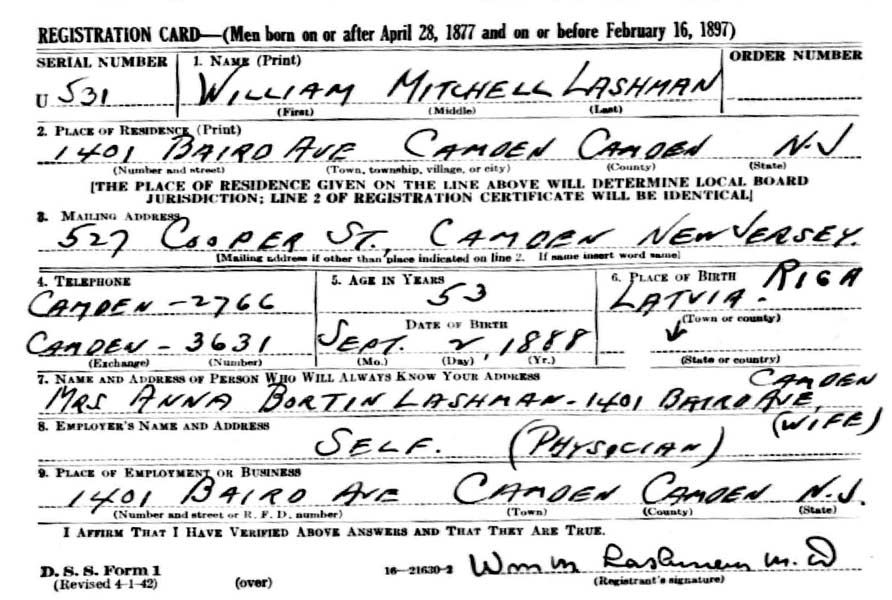 REGISTRATION CARD—(Men born on or after April 28, 1877 and on or before February 16, 1897)
SERIAL NUMBER 1. NAME (Print) ORDER NUMBER
U 531 WILLIAM MITCHELL LASHMAN
(First) (Middle) (Last)
2. PLACE OF RESIDENCE (Print)
1401 BAIRD AVE CAMDEN CAMDEN N.J
(Number and street) (Town, township, village, or city) (County) (State)
[THE PLACE OF RESIDENCE GIVEN ON THE LINE ABOVE WILL DETERMINE LOCAL BOARD
JURISDICTION; LINE 2 OF REGISTRATION CERTIFICATE WILL BE IDENTICAL]
3. MAILING ADDRESS
527 COOPER ST., CAMDEN NEW JERSEY.
[Mailing address if other than place indicated on line 2. If same insert word same]
4. TELEPHONE 5. AGE IN YEARS 6. PLACE OF BIRTH RIGA
CAMDEN - 2766 53 LATVIA.
DATE OF BIRTH (Town or county)
CAMDEN - 3631 SEPT. 2, 1888
(Exchange) (Number) (Mo.) (Day) (Yr.) (State or country)
7. NAME AND ADDRESS OF PERSON WHO WILL ALWAYS KNOW YOUR ADDRESS CAMDEN
MRS ANNA BORTIN LASHMAN - 1401 BAIRD AVE,
8. EMPLOYER'S NAME AND ADDRESS (WIFE)
SELF. (PHYSICIAN)
9. PLACE OF EMPLOYMENT OR BUSINESS
1401 BAIRD AVE CAMDEN CAMDEN N.J.
(Number and street or R. F. D. number) (Town) (County) (State)
I AFFIRM THAT I HAVE VERIFIED ABOVE ANSWERS AND THAT THEY ARE TRUE.
D. S. S. Form 1 16—21630-2 Wm M Lashman M.D
(Revised 4-1-42) (over) (Registrant's signature)